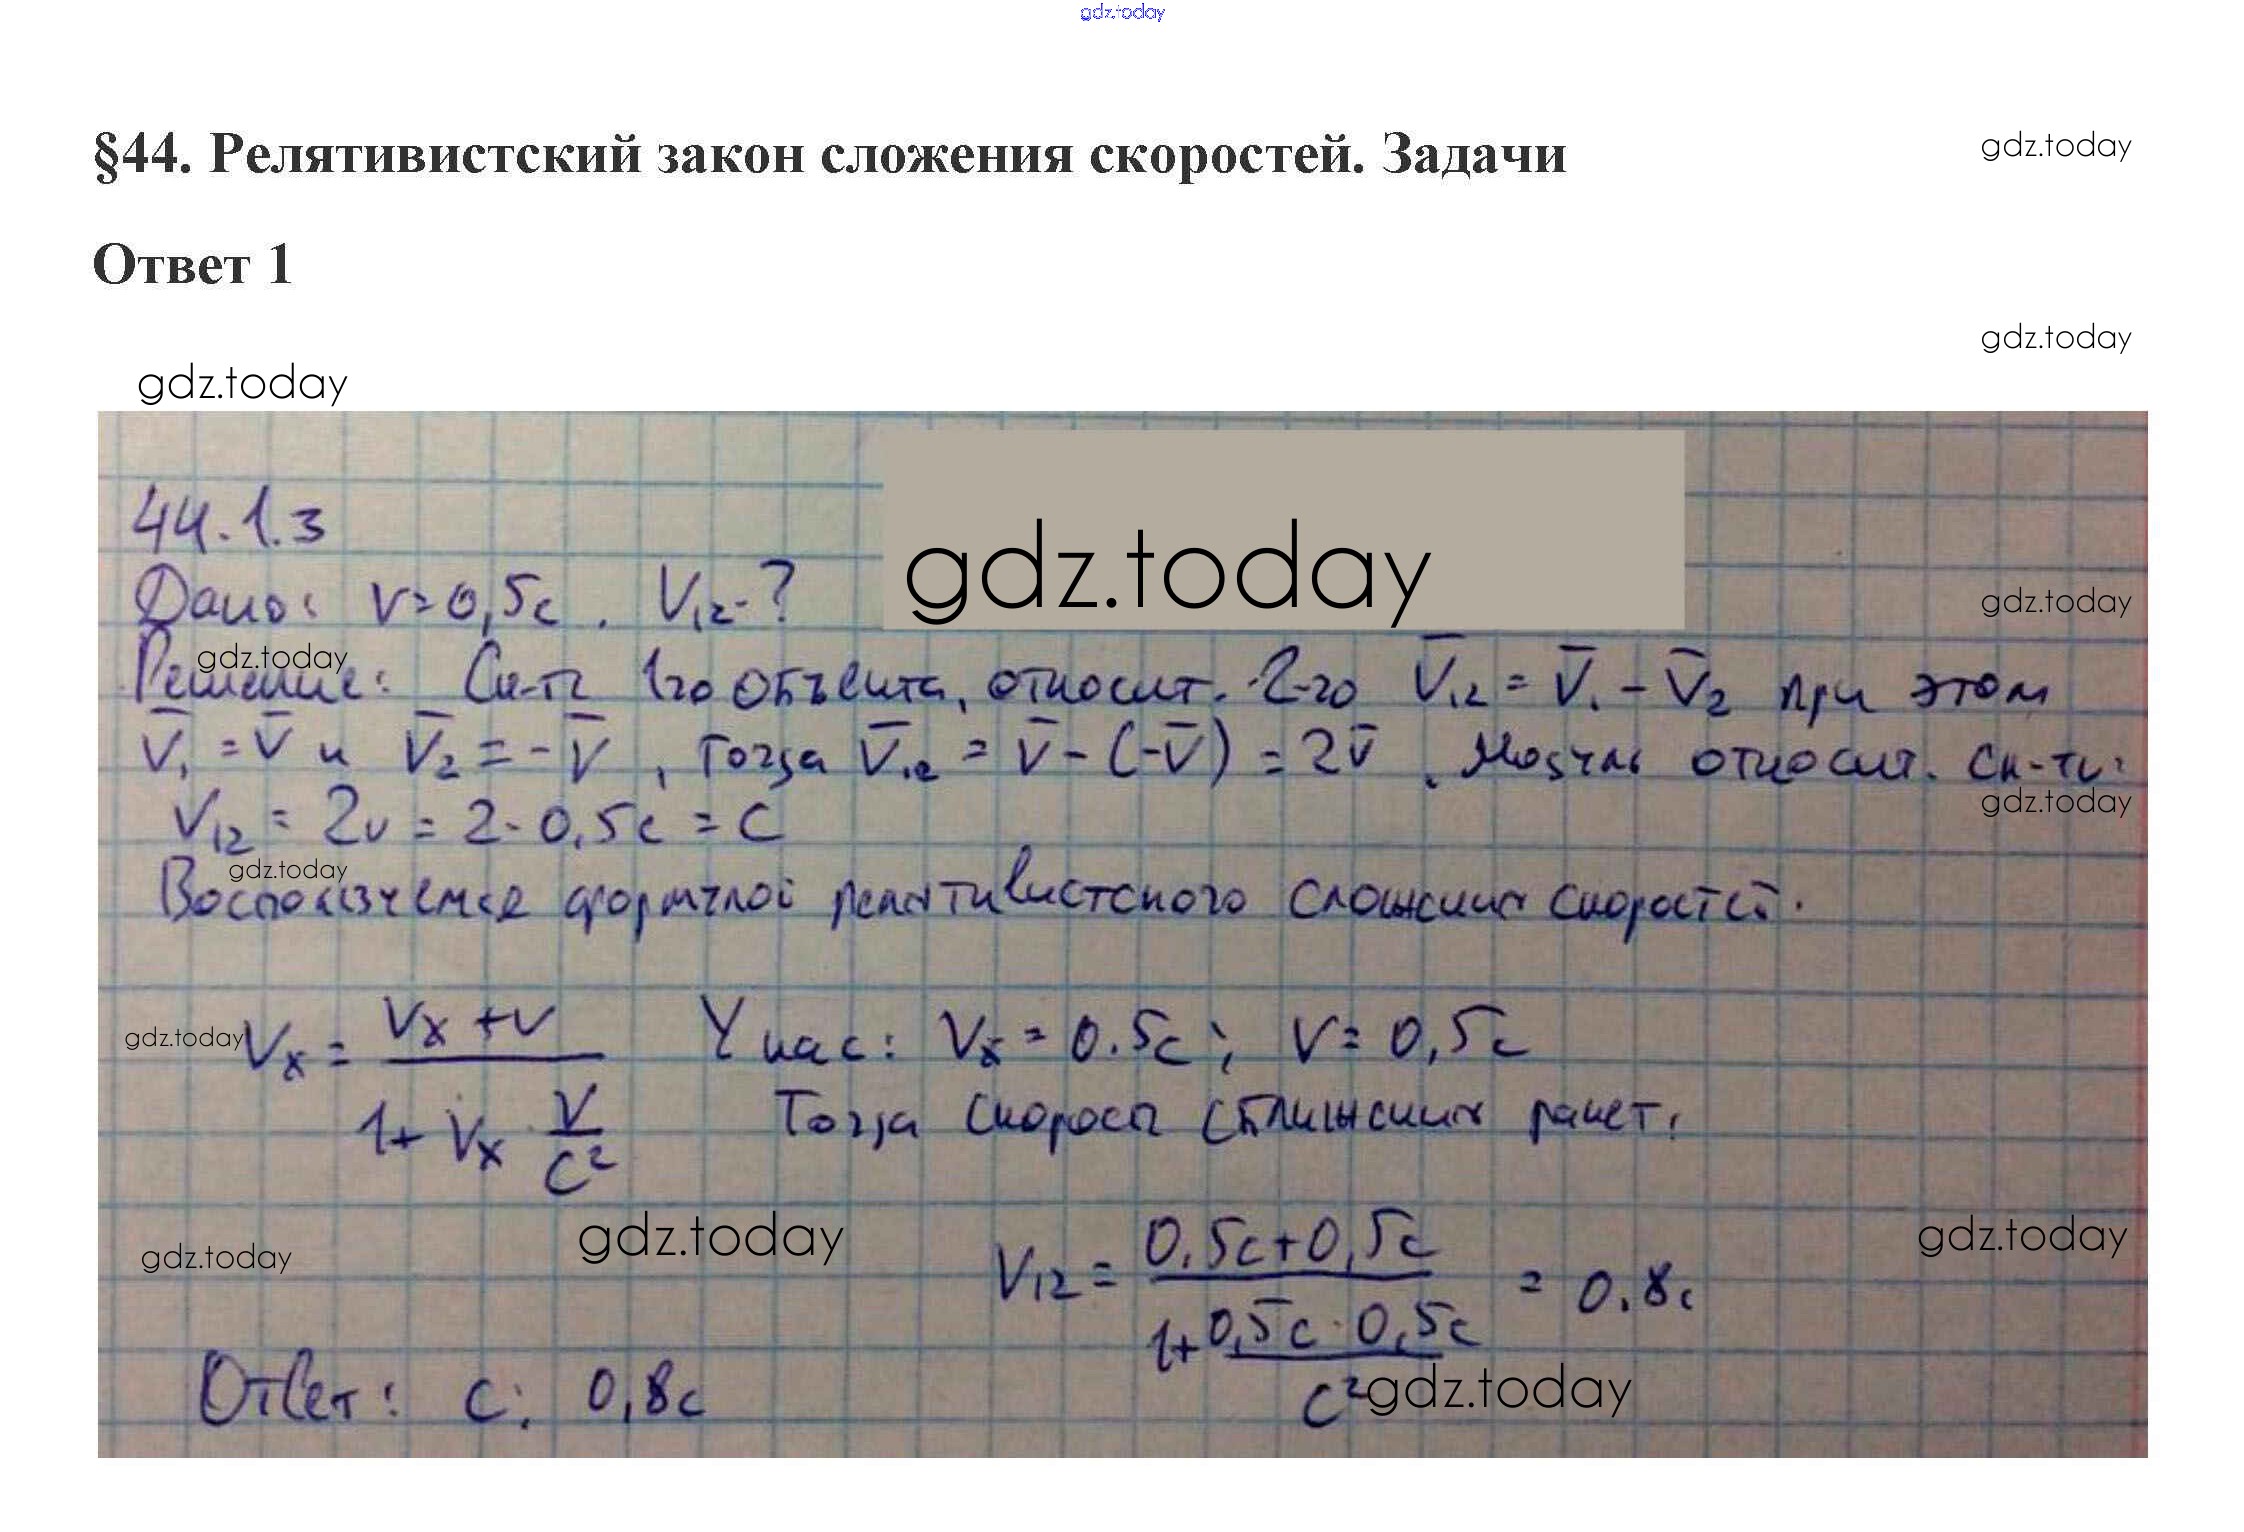 gdz.today
§44. Релятивистский закон сложения скоростей. Задачи
gdz.today
Ответ 1
gdz.today
gdz.today
44.1.3
gdz.today
Дано: v=0,5c. V₁₂-?
gdz.today
gdz.today
Решение: Ск-ть 1го объекта, относит. 2-го V̅₁₂ = V̅₁ - V̅₂ при этом
V̅₁ = V̅ и V̅₂ = -V̅, тогда V̅₁₂ = V̅ - (-V̅) = 2V̅. Модуль относит. ск-ти:
gdz.today
V₁₂ = 2v = 2·0,5c = c
gdz.today
Воспользуемся формулой релятивистского сложения скоростей.
gdz.today
Vₓ = (Vₓ + V) / (1 + Vₓ · V/c²)
У нас: Vₓ = 0.5c; V = 0,5c
Тогда скорость сближения ракет:
gdz.today
gdz.today
gdz.today
V₁₂ = (0.5c+0,5c) / (1 + (0,5c·0,5c)/c²) = 0.8c
gdz.today
Ответ: c; 0,8c